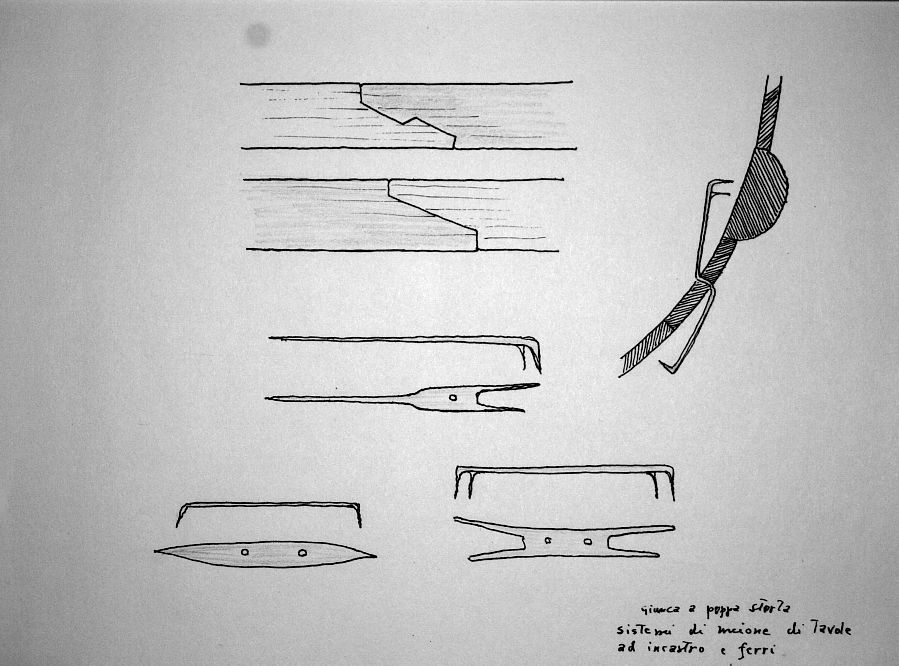 giunca a poppa storta
sistemi di unione di tavole
ad incastro e ferri